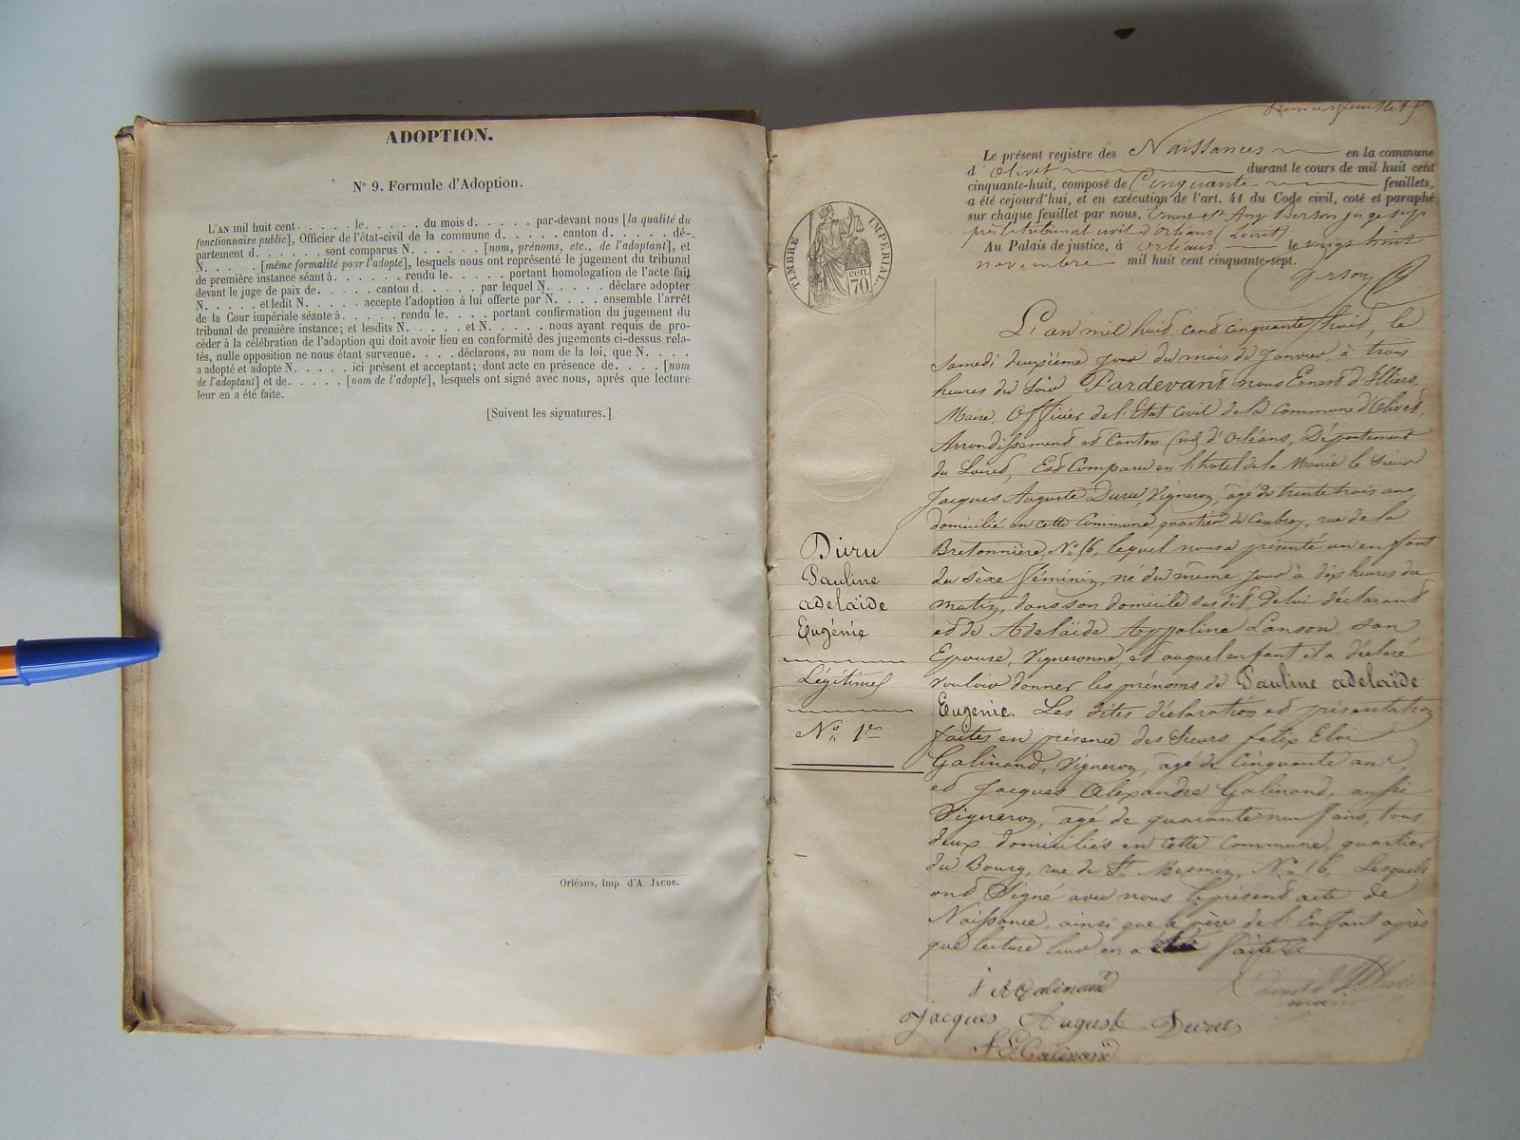 ADOPTION.
N° 9. Formule d'Adoption.
L'AN mil huit cent. . . . . . le. . . . . . du mois d. . . . . . par-devant nous [la qualité du
fonctionnaire public], Officier de l'état-civil de la commune d. . . . . canton d. . . . . dé-
partement d. . . . . . sont comparus N. . . . . . [nom, prénoms, etc., de l'adoptant], et
N. . . . . [même formalité pour l'adopté], lesquels nous ont représenté le jugement du tribunal
de première instance séant à. . . . . . rendu le. . . . . portant homologation de l'acte fait
devant le juge de paix de. . . . . . canton d. . . . . par lequel N. . . . . déclare adopter
N. . . . . et ledit N. . . . . . accepte l'adoption à lui offerte par N. . . . . ensemble l'arrêt
de la Cour impériale séante à. . . . . . rendu le. . . . portant confirmation du jugement du
tribunal de première instance; et lesdits N. . . . . et N. . . . . nous ayant requis de pro-
céder à la célébration de l'adoption qui doit avoir lieu en conformité des jugements ci-dessus rela-
tés, nulle opposition ne nous étant survenue. . . . déclarons, au nom de la loi, que N. . . .
a adopté et adopte N. . . . . ici présent et acceptant; dont acte en présence de. . . . [nom
de l'adoptant] et de. . . . . [nom de l'adopté], lesquels ont signé avec nous, après que lecture
leur en a été faite.
[Suivent les signatures.]
Orléans, Imp. d'A. JACOB.
Le présent registre des Naissances en la commune
d'Olivet durant le cours de mil huit cent
cinquante-huit, composé de Cinquante feuillets,
a été cejourd'hui, et en exécution de l'art. 41 du Code civil, coté et paraphé
sur chaque feuillet par nous, juge supp
près le tribunal civil d'orléans (Loiret)
Au Palais de justice, à Orléans le vingt huit
novembre mil huit cent cinquante-sept.
TIMBRE IMPÉRIAL
70 cen.
L'an mil huit cent cinquante huit, le
Samedi deuxième jour du mois de Janvier à trois
heures du Soir Pardevant nous Ernest d'Illiers,
Maire, Officier de l'Etat Civil de la Commune d'Olivet,
Arrondissement et Canton Sud d'Orléans, Département
du Loiret, Est Comparu en l'hotel de la Mairie le Sieur
Jacques Auguste Duru, Vigneron, âgé de trente trois ans,
domicilié en cette Commune, quartier de Caubray, rue de la
Bretonnière, N° 16, lequel nous a présenté un enfant
du sèxe féminin, né du même jour à dix heures du
matin, dans son domicile susdit, de lui déclarant
et de Adelaïde Appoline Lanson son
Epouse, Vigneronne, et auquel enfant il a déclaré
vouloir donner les prénoms de Pauline adelaïde
Eugénie. Les dites déclaration et présentation
faites en présence des Sieurs felix Eloi
Galinand, Vigneron, âgé de Cinquante ans,
et Jacques Alexandre Galinand, aussi
Vigneron, âgé de quarante neuf ans, tous
deux domiciliés en cette Commune, quartier
du Bourg, rue de St Mesmin, N° 16, Lesquels
ont Signé avec nous le présent acte de
Naissance, ainsi que le père de l'Enfant après
que lecture leur en a été faite
Duru
Pauline
adelaïde
Eugénie
Légitime
N° 1er
J A Galinand
Jacques Auguste Duru
f E Galinand